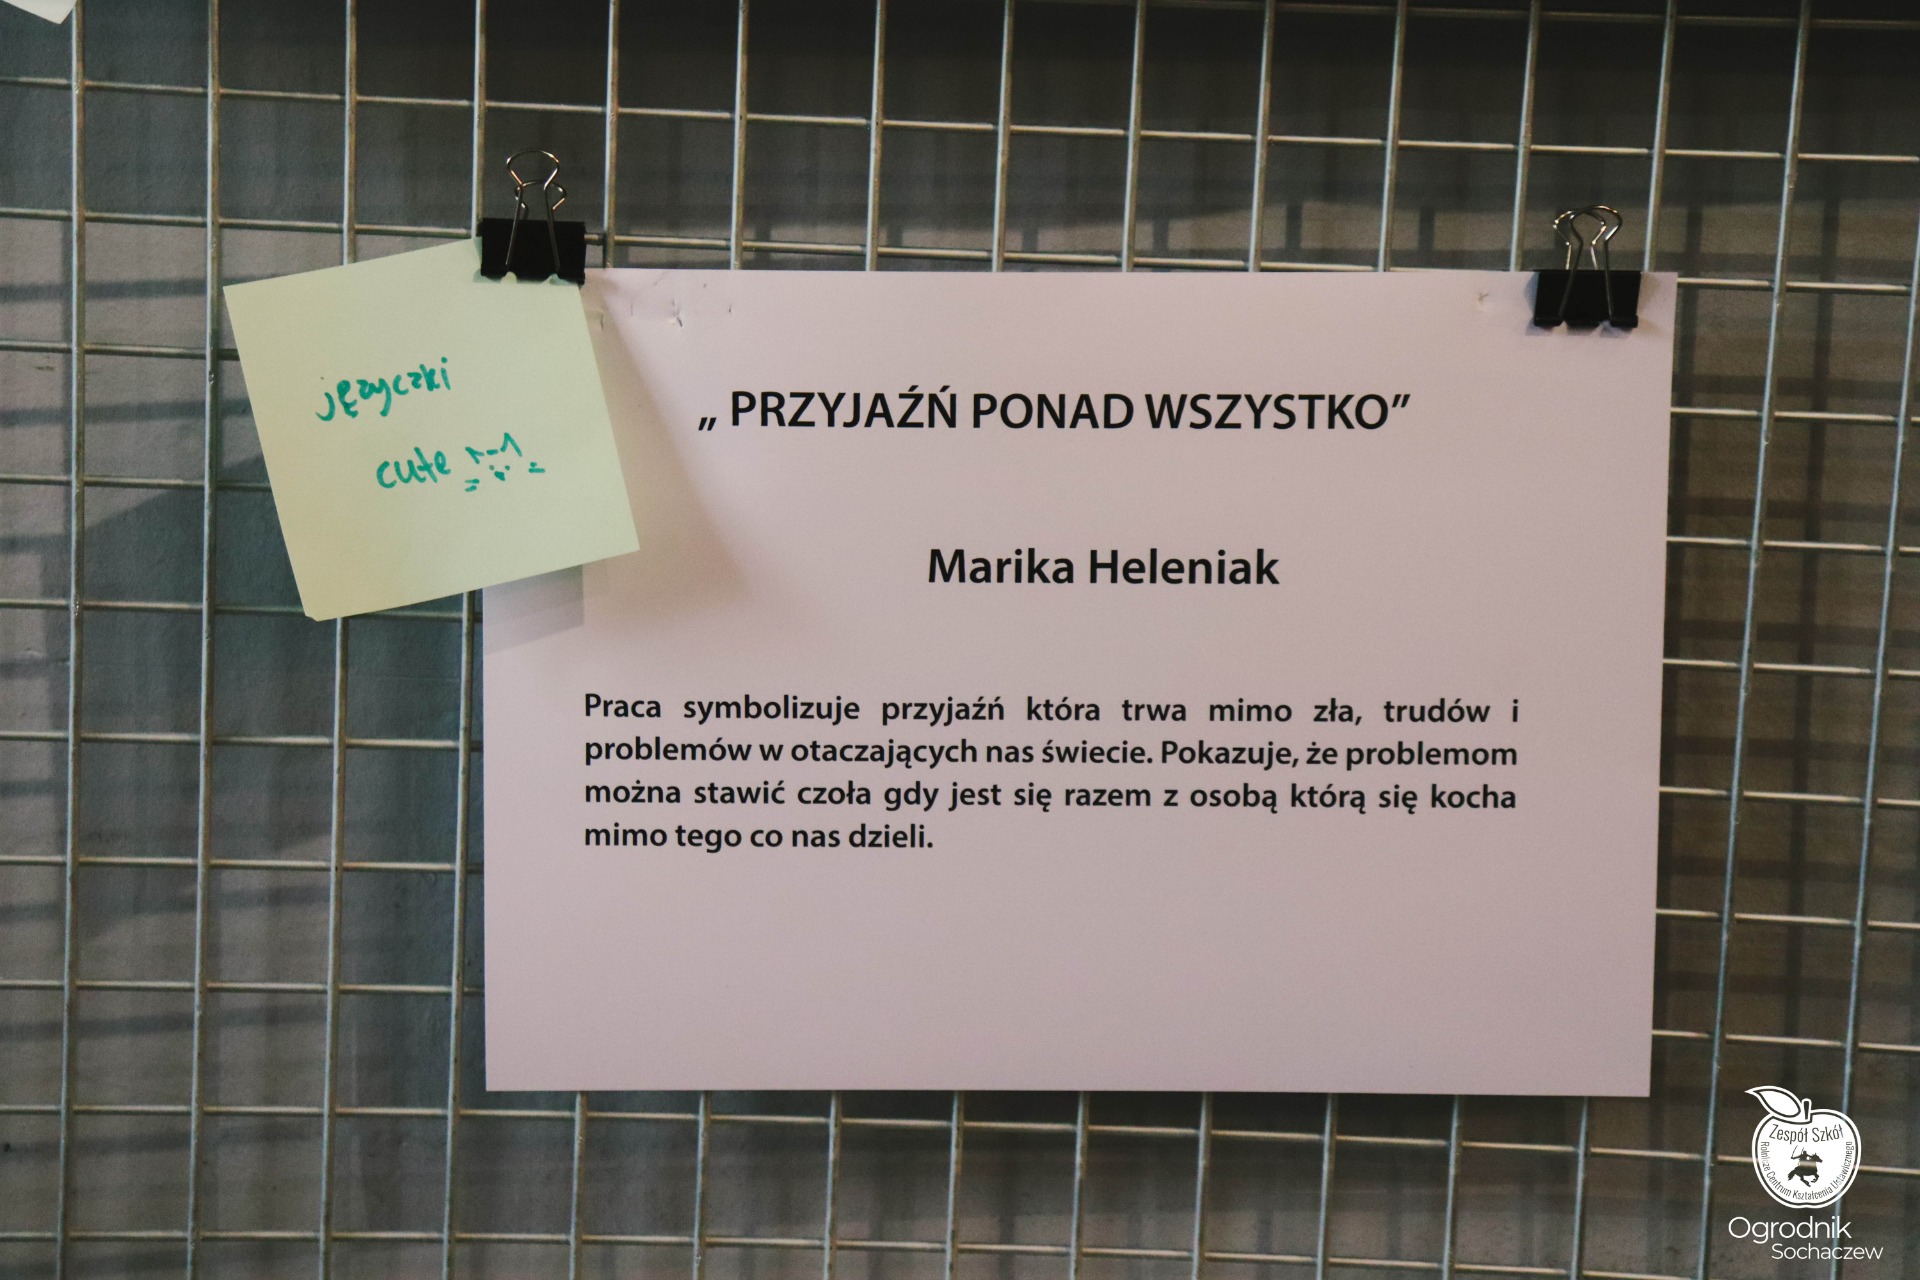 języczki
cute
„ PRZYJAŹŃ PONAD WSZYSTKO”
Marika Heleniak
Praca symbolizuje przyjaźń która trwa mimo zła, trudów i
problemów w otaczających nas świecie. Pokazuje, że problemom
można stawić czoła gdy jest się razem z osobą którą się kocha
mimo tego co nas dzieli.
Zespół Szkół
Rolnicze Centrum Kształcenia Ustawicznego
Ogrodnik
Sochaczew